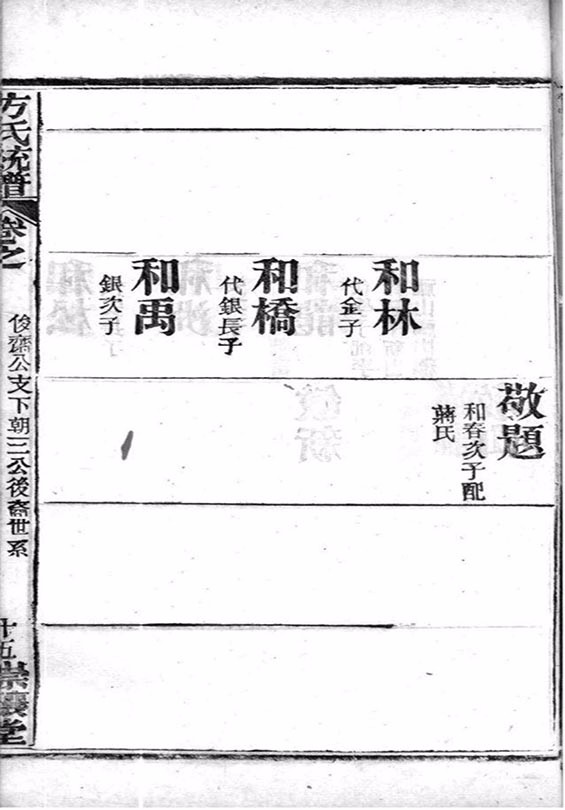 敬題
和春次子配
蔣氏
和林
代金子
和橋
代銀長子
和禹
銀次子
方氏統譜
卷之
俊齋公支下朝三公後裔世系
十五
崇義堂